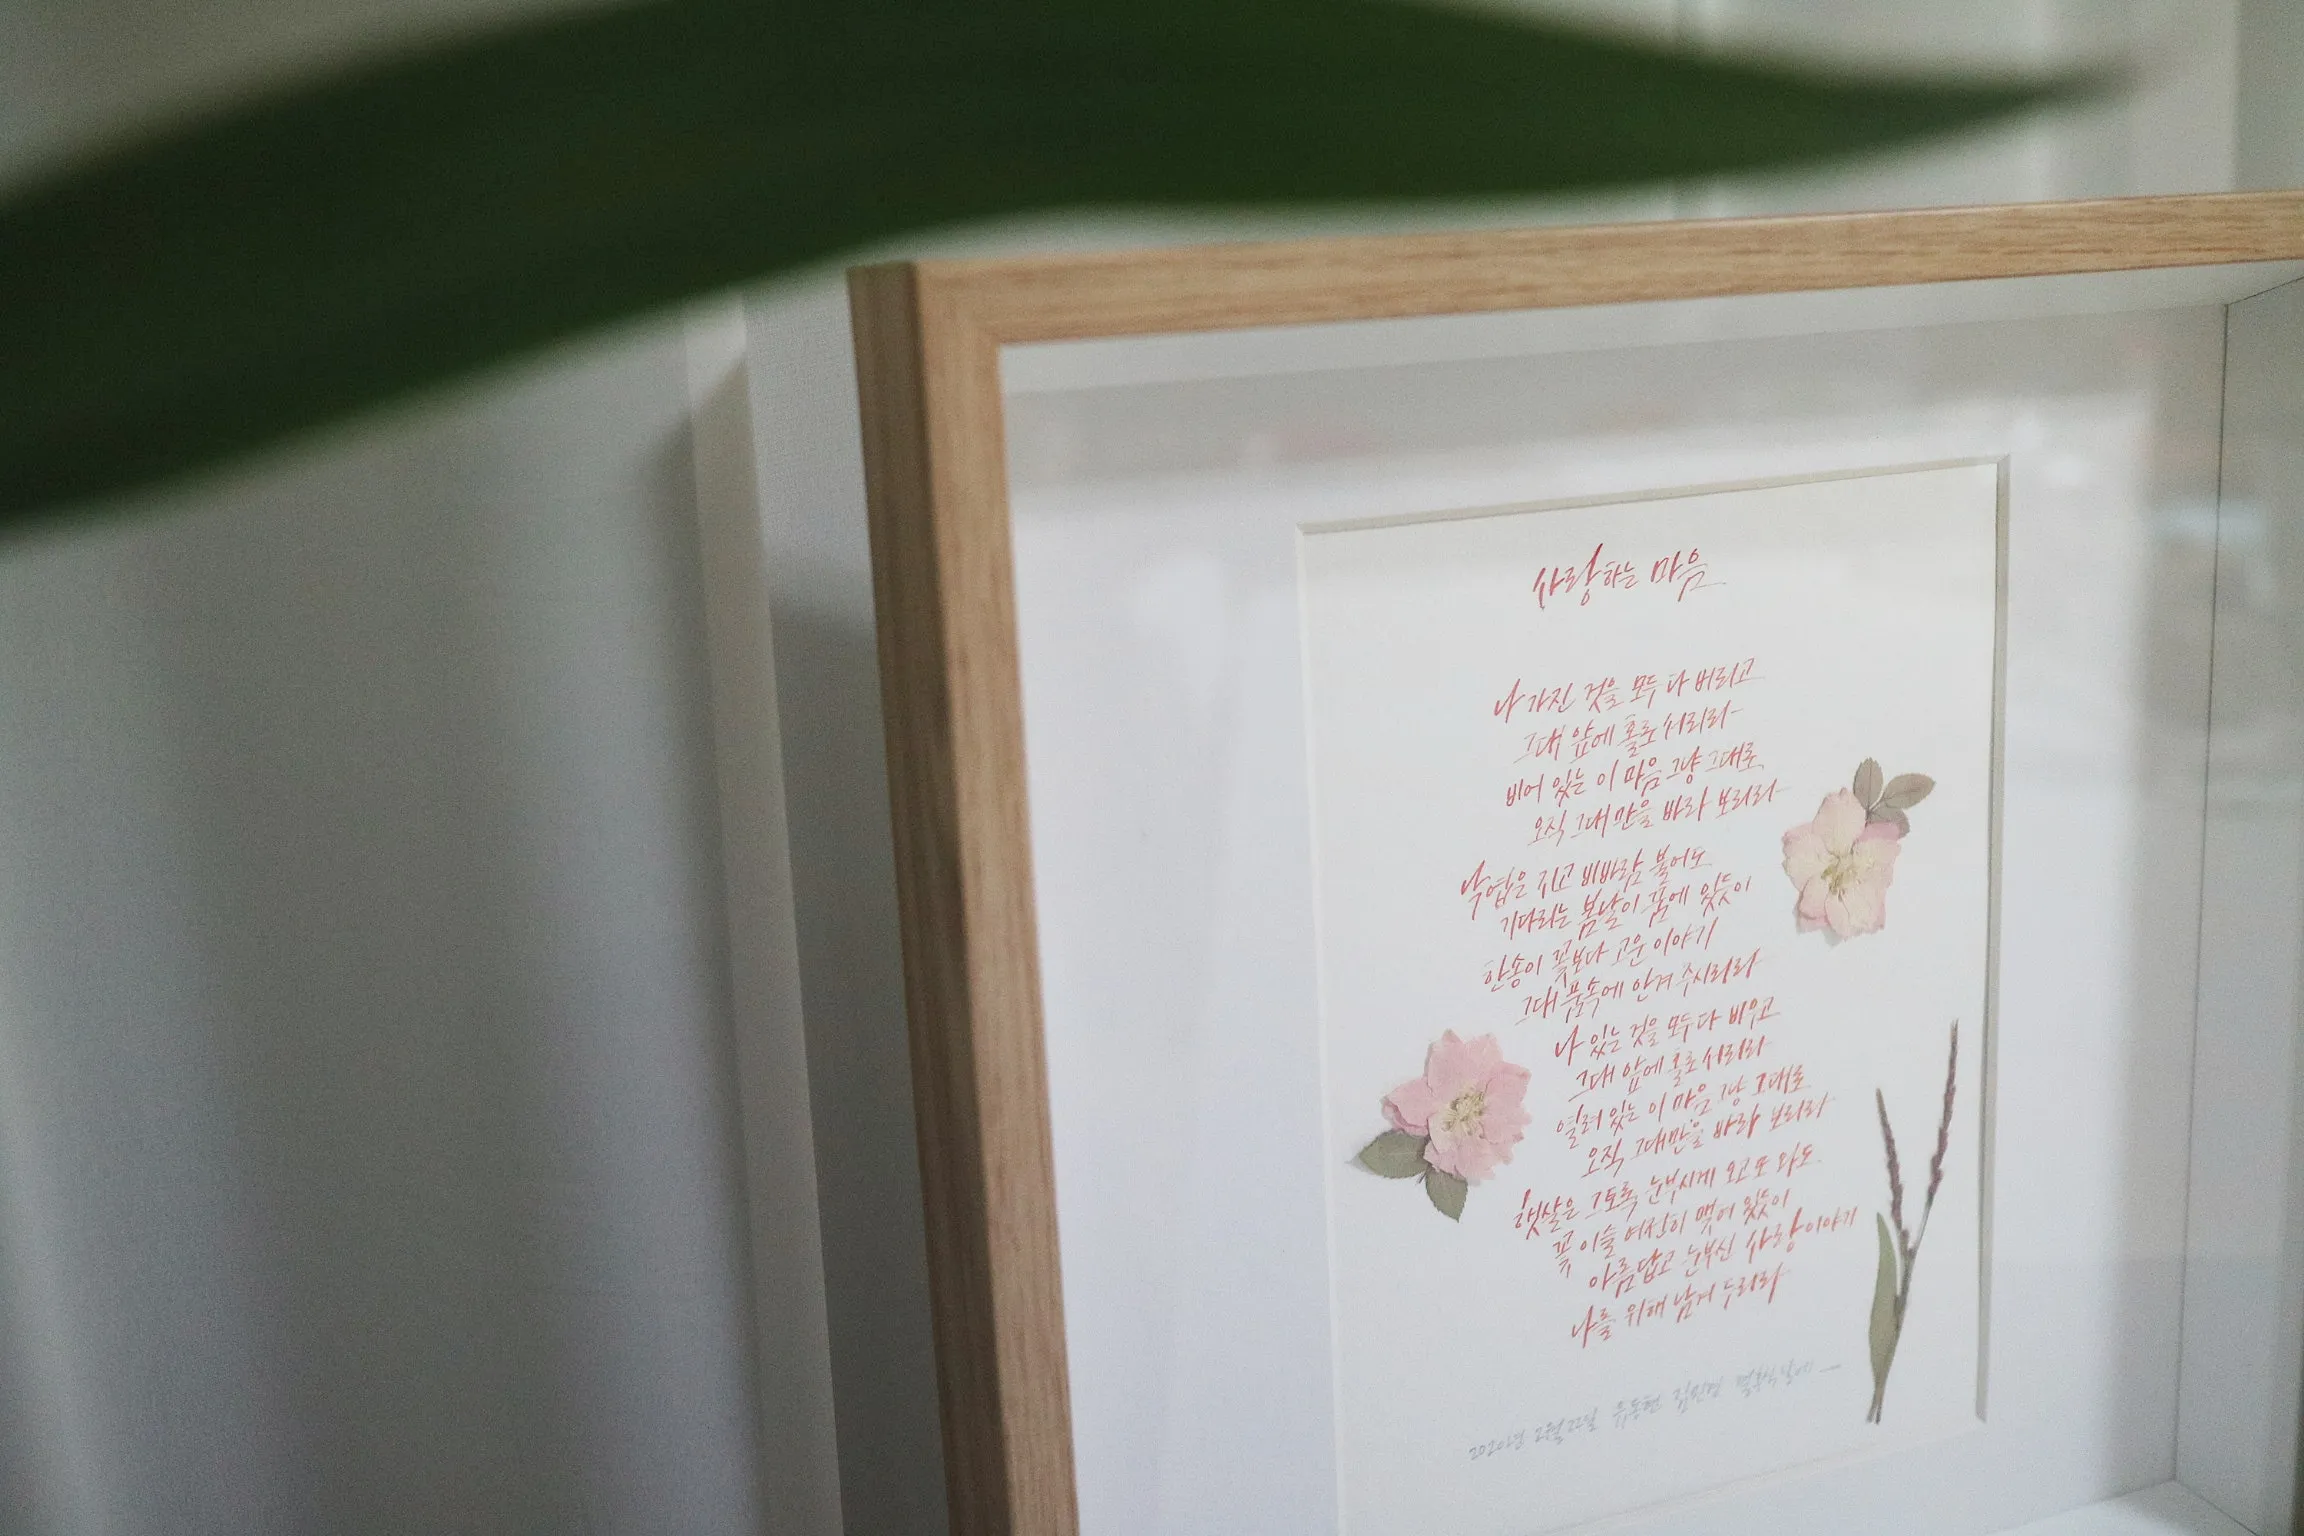 사랑하는 마음
나 가진 것을 모두 다 버리고
그대 앞에 홀로 서리라
비어 있는 이 마음 그냥 그대로
오직 그대만을 바라 보리라
낙엽은 지고 비바람 불어도
기다리는 봄날이 품에 있듯이
한송이 꽃보다 고운 이야기
그대 품속에 안겨 주시리라
나 있는 것을 모두 다 비우고
그대 앞에 홀로 서리라
열려 있는 이 마음 그냥 그대로
오직 그대만을 바라 보리라
햇살은 그토록 눈부시게 오고 또 와도
꽃 이슬 여전히 맺혀 있듯이
아름답고 눈부신 사랑이야기
나를 위해 남겨 두리라
2020년 2월 22일 유동현 김민경 결혼식날에